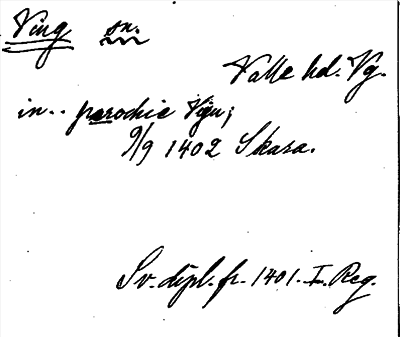 Ving sn.
Valle hd. Vg.
in.. parochie Vigu;
9/9 1402 Skara.
Sv. dipl. fr. 1401. I. Reg.